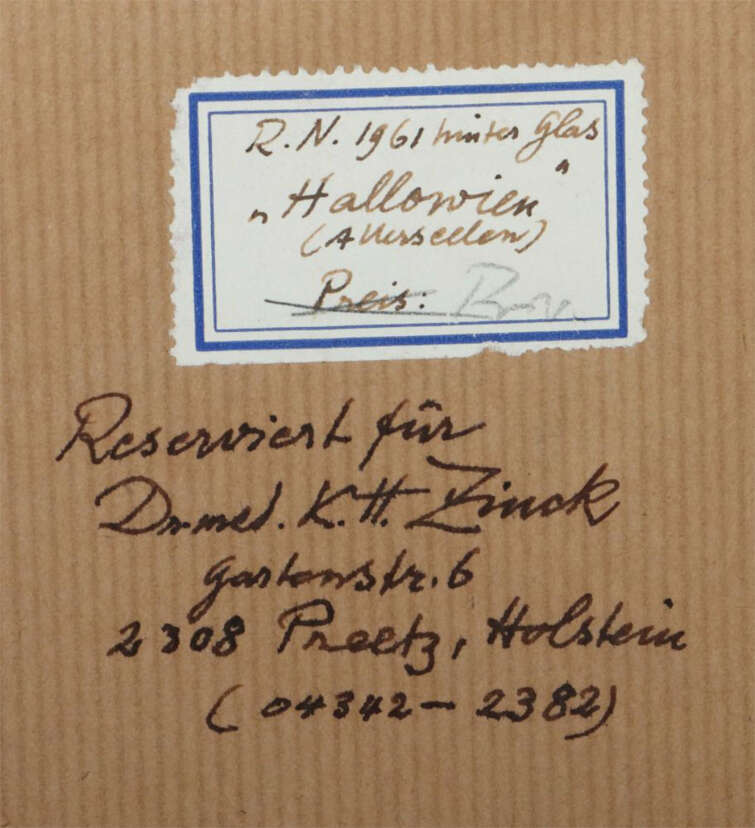 R.N. 1961 hinter Glas
„Hallowien"
(Allerseelen)
Preis:
Reserviert für
Dr. med. K.H. Zinck
Gartenstr. 6
2308 Preetz, Holstein
(04342 – 2382)